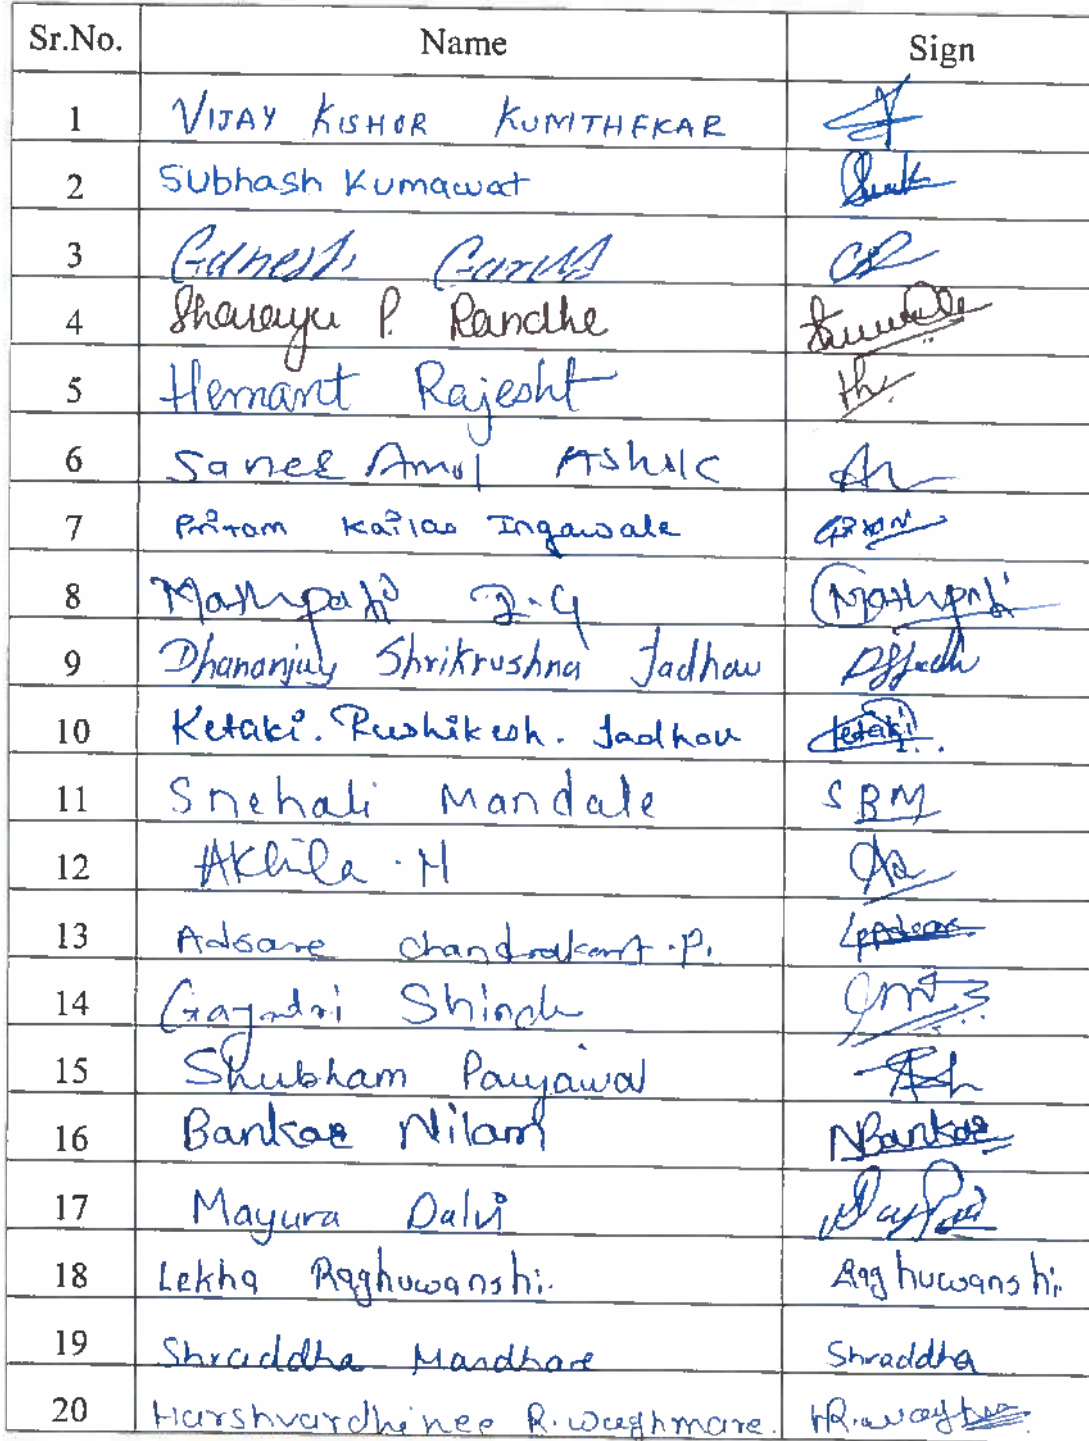 Sr.No. Name Sign
1 VIJAY KISHOR KUMTHEKAR
2 Subhash Kumawat
3 Ganesh
4 Sharayu P. Randhe
5 Hemant Rajesht
6 Sanee Amol Ashok
7 Pritam Kailas Ingawale
8 Mathpati Mathpati
9 Dhananjay Shrikrushna Jadhav
10 Ketaki. Rushikesh. Jadhav Ketaki
11 Snehali Mandale SBM
12 Akhila . M
13 Adsare Chandrakant .P.
14 Gayatri Shinde
15 Shubham
16 Bankar Nilam NBankar
17 Mayura Dalvi
18 Lekha Raghuwanshi. Raghuwanshi.
19 Shraddha Mandhare Shraddha
20 Harshvardhinee R. Waghmare.